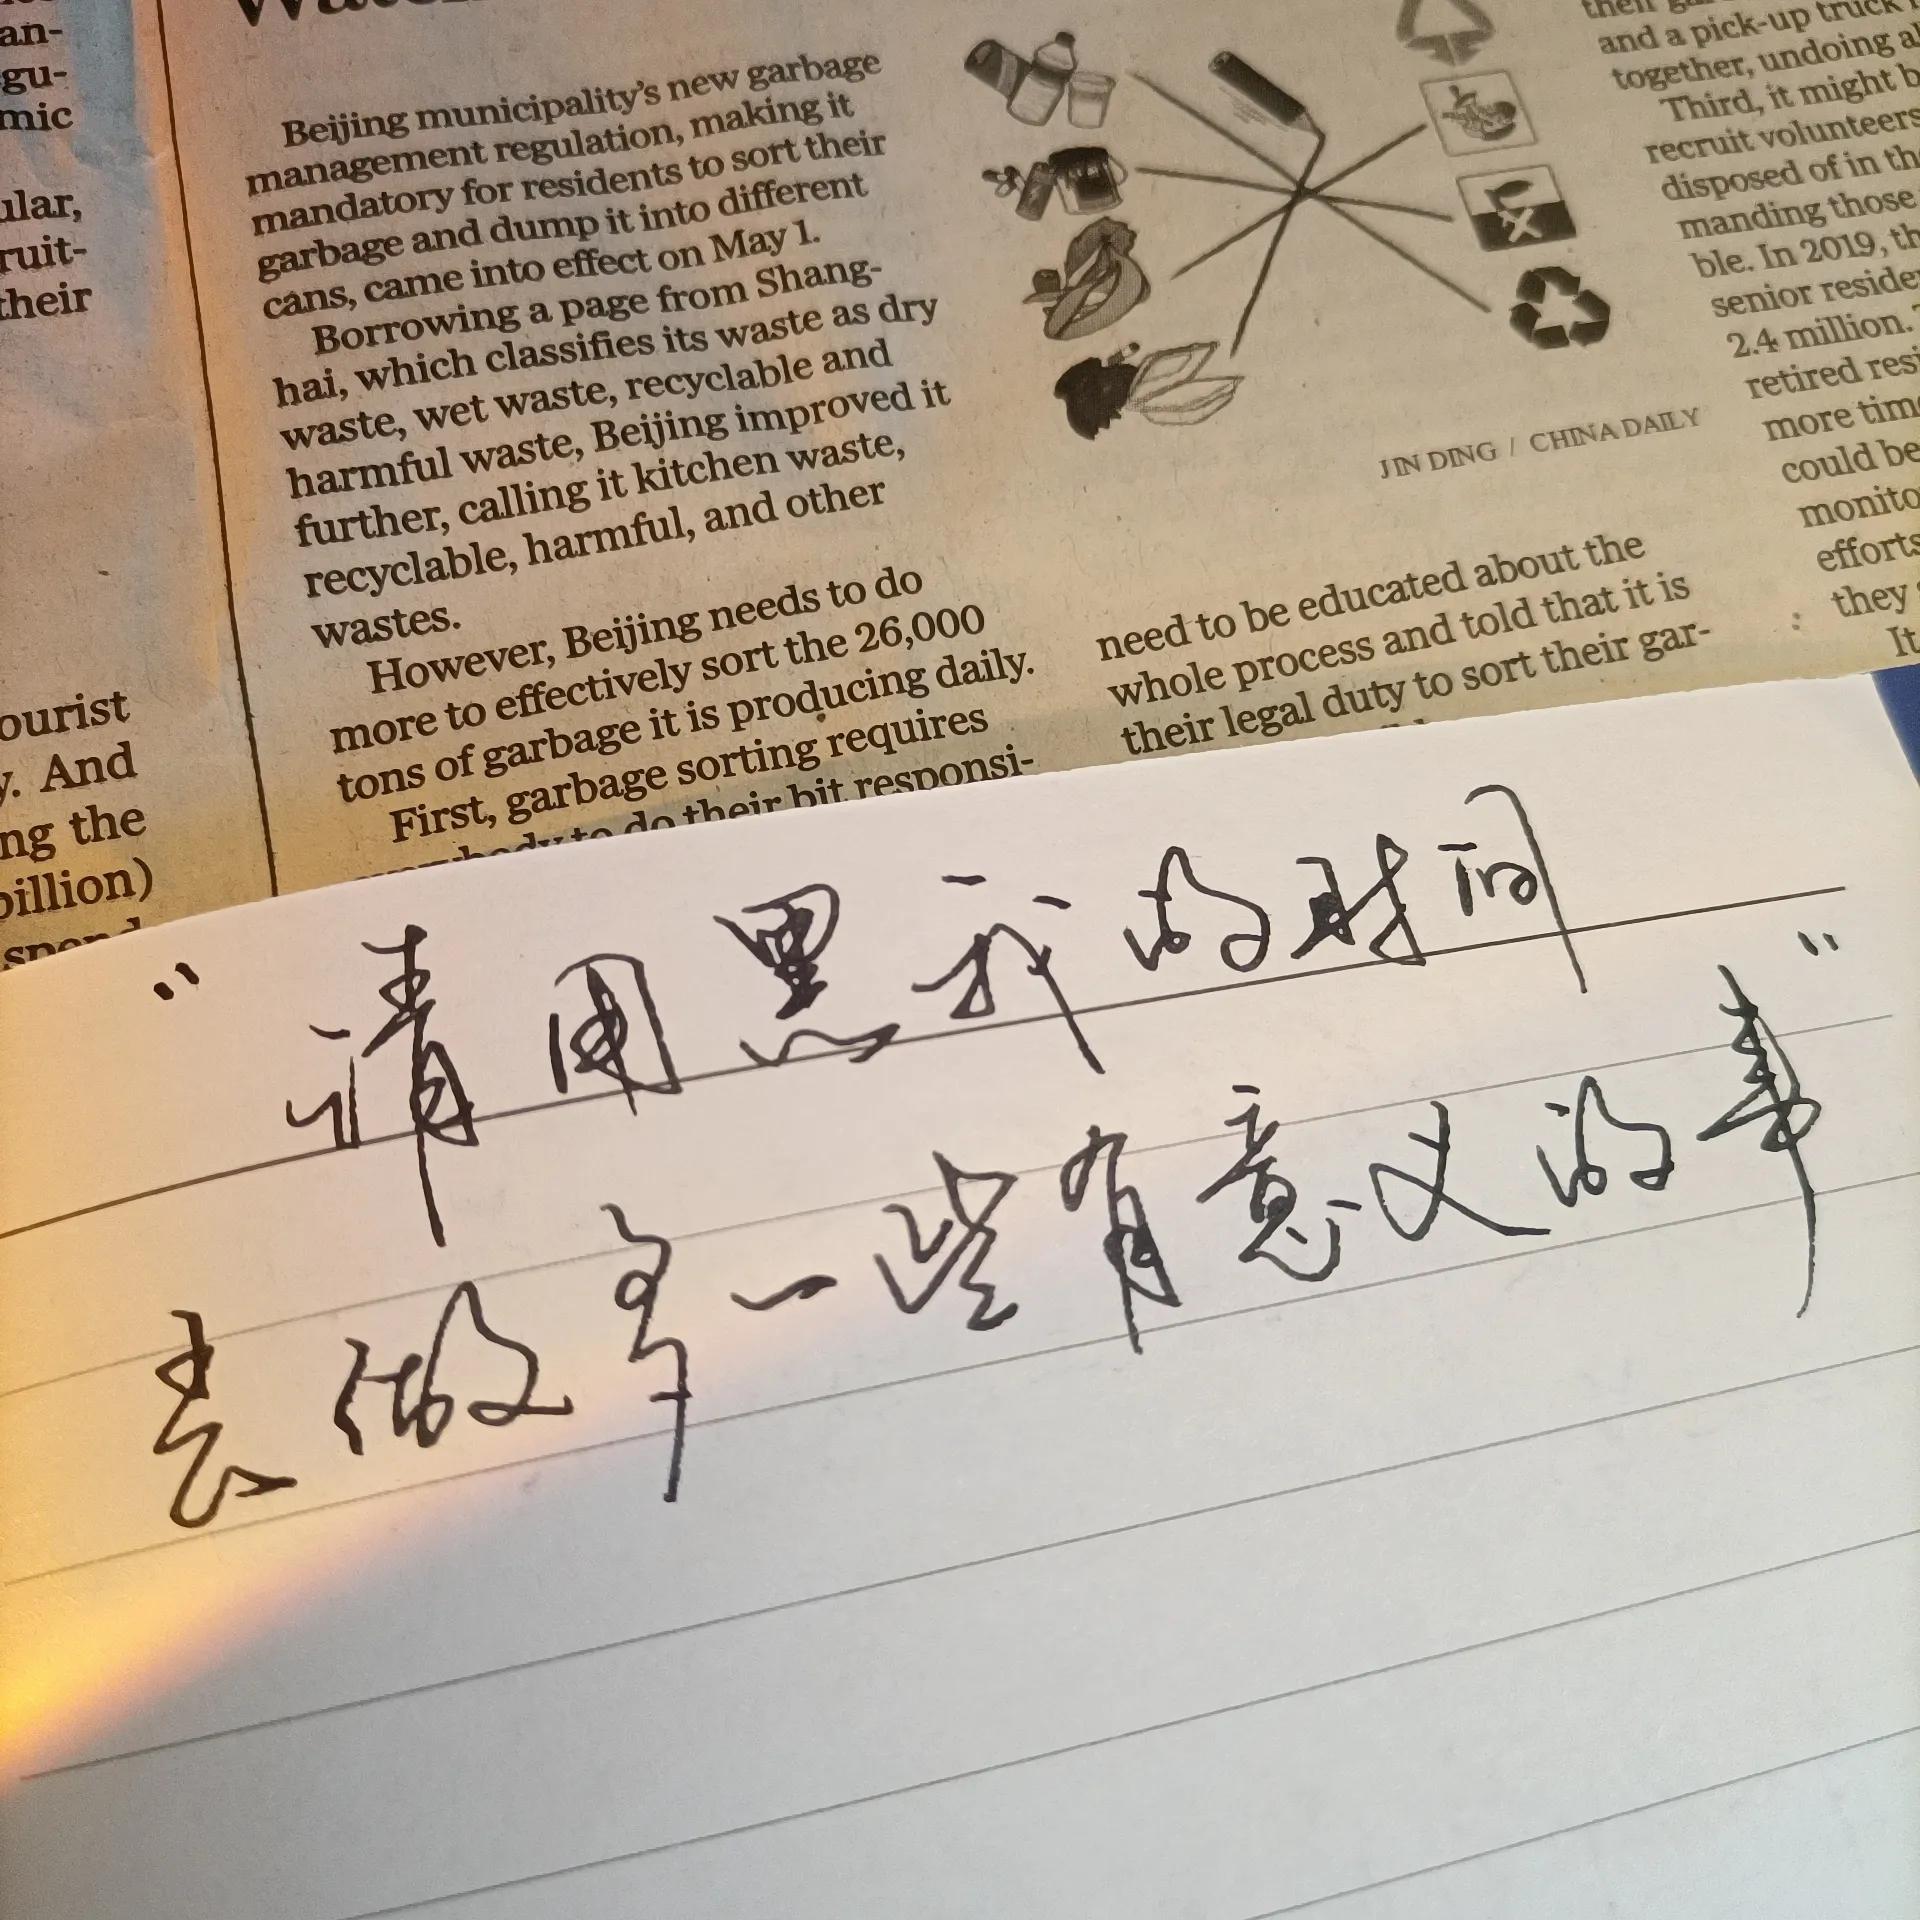 an-
gu-
mic
ular,
ruit-
their
ourist
y. And
ng the
billion)
spend
Beijing municipality's new garbage
management regulation, making it
mandatory for residents to sort their
garbage and dump it into different
cans, came into effect on May 1.
Borrowing a page from Shang-
hai, which classifies its waste as dry
waste, wet waste, recyclable and
harmful waste, Beijing improved it
further, calling it kitchen waste,
recyclable, harmful, and other
wastes.
However, Beijing needs to do
more to effectively sort the 26,000
tons of garbage it is producing daily.
First, garbage sorting requires
to do their bit responsi-
JIN DING / CHINA DAILY
need to be educated about the
whole process and told that it is
their legal duty to sort their gar-
their
and a pick-up truck
together, undoing
Third, it might
recruit volunteers
disposed of in
manding those
ble. In 2019,
senior
2.4 million.
retired
more
could be
efforts
they
It
"请用黑我的时间
去做多一些有意义的事"